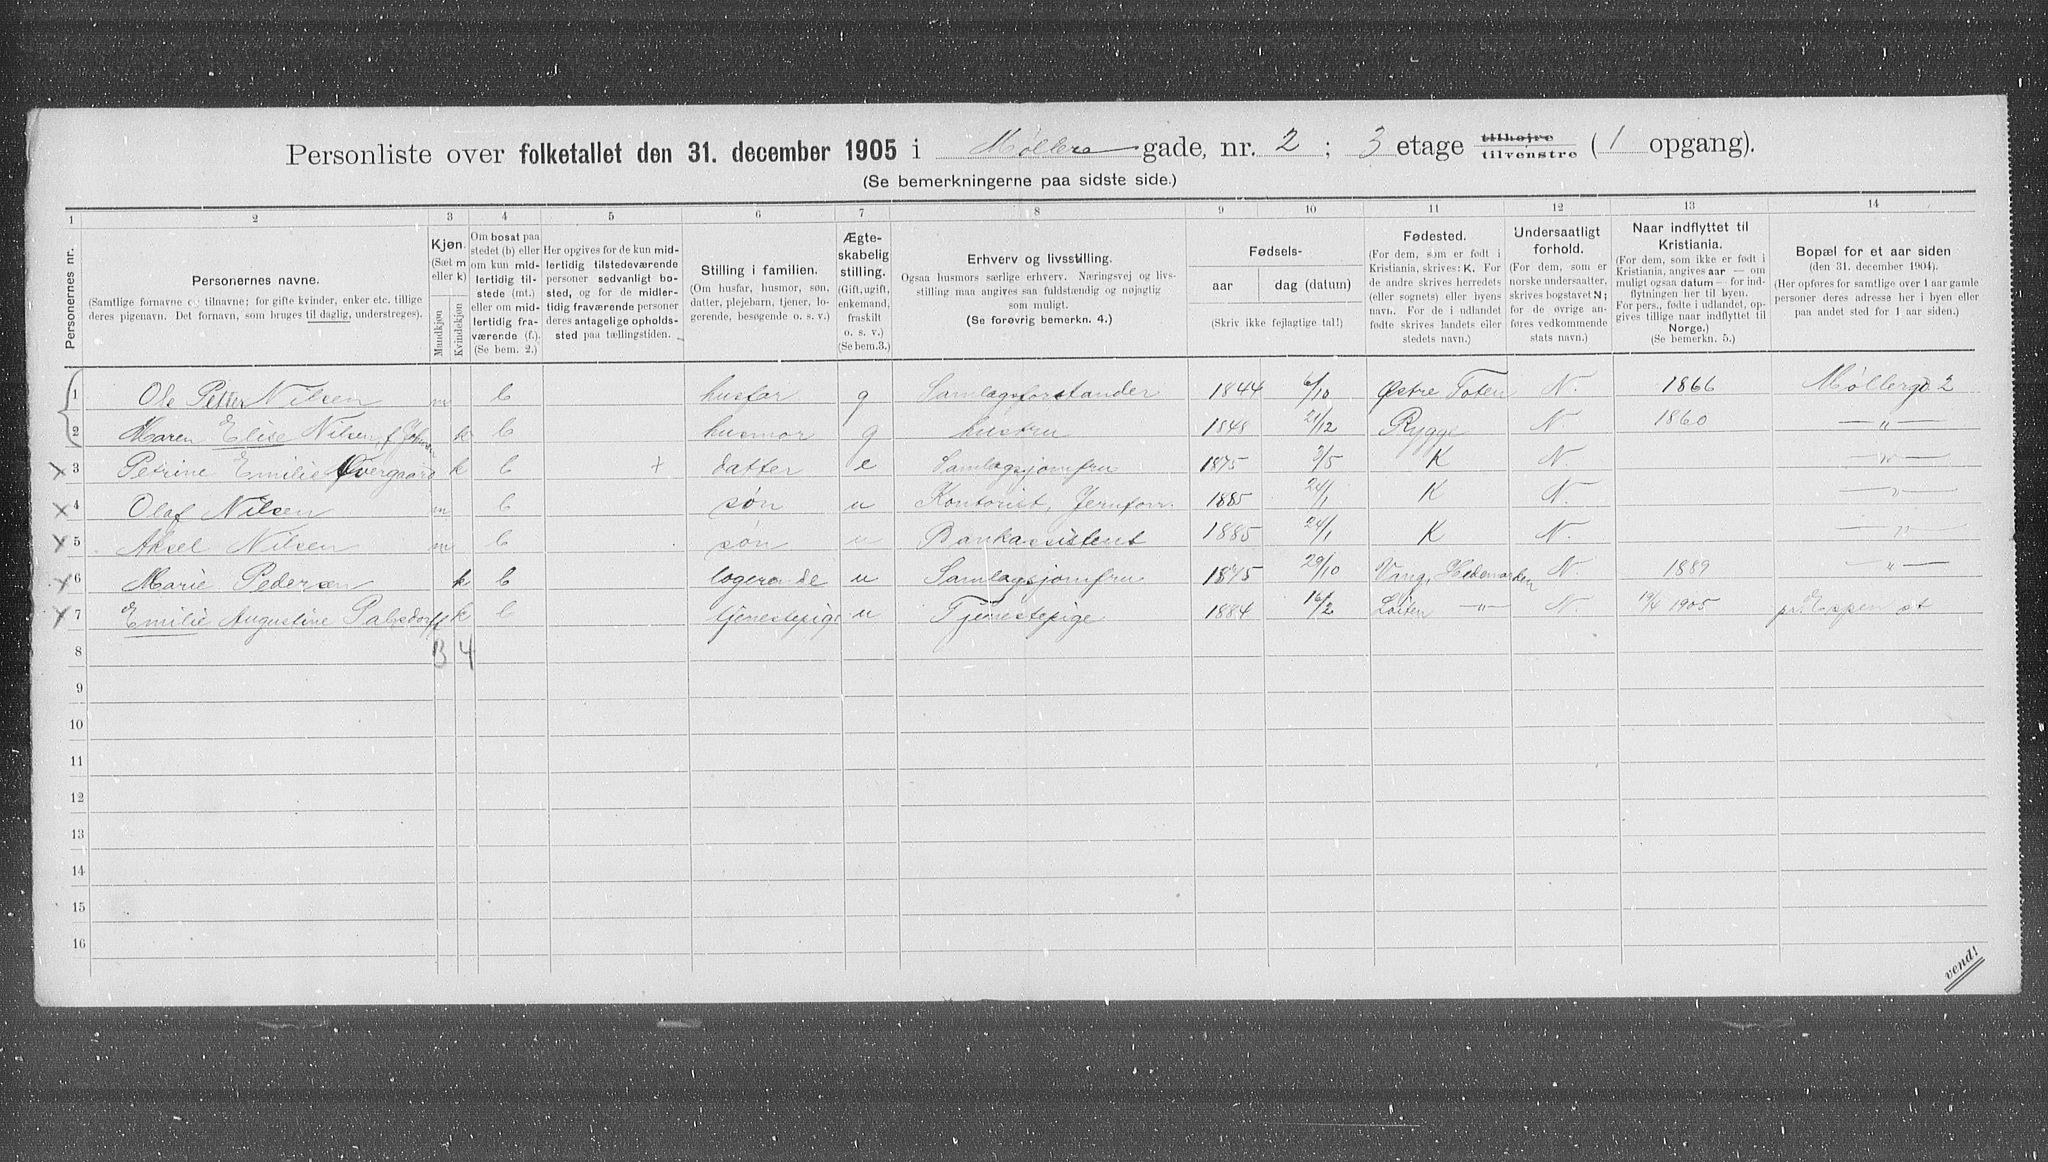 Personliste over folketallet den 31. december 1905 i Møllers gade, nr. 2 ; 3 etage tilhøjre tilvenstre ( 1 opgang).
(Se bemerkningerne paa sidste side.)
1 2 3 4 5 6 7 8 9 10 11 12 13 14
Personernes nr.
Personernes navne.
(Samtlige fornavne og tilnavne; for gifte kvinder, enker etc. tillige
deres pigenavn. Det fornavn, som bruges til daglig, understreges).
Kjøn.
(Sæt m
eller k)
Mandkjøn
Kvindekjøn
Om bosat paa
stedet (b) eller
om kun mid-
lertidig til-
stede (mt.)
eller om mid-
lertidig fra-
værende (f.).
(Se bem. 2.)
Her opgives for de kun mid-
lertidig tilstedeværende
personer sedvanligt bo-
sted, og for de midler-
tidig fraværende personer
deres antagelige opholds-
sted paa tællingstiden.
Stilling i familien.
(Om husfar, husmor, søn,
datter, plejebarn, tjener, lo-
gerende, besøgende o. s. v.)
Ægte-
skabelig
stilling.
(Gift, ugift,
enkemand,
fraskilt
o. s. v.)
(Se bem.3.)
Erhverv og livsstilling.
Ogsaa husmors særlige erhverv. Næringsvej og livs-
stilling maa angives saa fuldstændig og nøjagtig
som muligt.
(Se forøvrig bemerkn. 4.)
Fødsels-
aar dag (datum)
(Skriv ikke fejlagtige tal!)
Fødested.
(For dem, som er født i
Kristiania, skrives: K. For
de andre skrives herredets
(eller sognets) eller byens
navn. For de i udlandet
fødte skrives landets eller
stedets navn.)
Undersaatligt
forhold.
(For dem, som er
norske undersaatter,
skrives bogstavet N;
for de øvrige an-
føres vedkommende
stats navn.)
Naar indflyttet til
Kristiania.
(For dem, som ikke er født i
Kristiania, angives aar — om
muligt ogsaa datum — for ind-
flytningen her til byen.
For pers., fødte i udlandet, op-
gives tillige naar indflyttet til
Norge.)
(Se bemerkn. 5.)
Bopæl for et aar siden
(den 31. december 1904).
(Her opføres for samtlige over 1 aar gamle
personer deres adresse her i byen eller
paa andet sted for 1 aar siden.)
1 Ole Petter Nilsen m b husfar g Samlagsforstander 1844 6/10 Østre Toten N. 1866 Møllergd 2
2 Maren Elise Nilsen, f. k b husmor g hustru 1848 21/12 Rygge N. 1860 —"—
x 3 Petrine Emilie Overgaard k b + datter e Samlagsjomfru 1875 3/5 K N. —"—
x 4 Olaf Nilsen m b søn u Kontorist, Jernforr. 1885 24/1 K N. —"—
x 5 Aksel Nilsen m b søn u Bankassistent 1885 24/1 K N. —"—
x 6 Marie Pedersen k b logerende u Samlagsjomfru 1875 29/10 Vang, Hedemarken N 1889 —"—
x 7 Emilie Augustine Palsdorff k b tjenestepige u Tjenestepige 1884 16/2 Løiten —"— N. 19/4 1905 pr. Eppen st
8 3 4
9
10
11
12
13
14
15
16
vend!